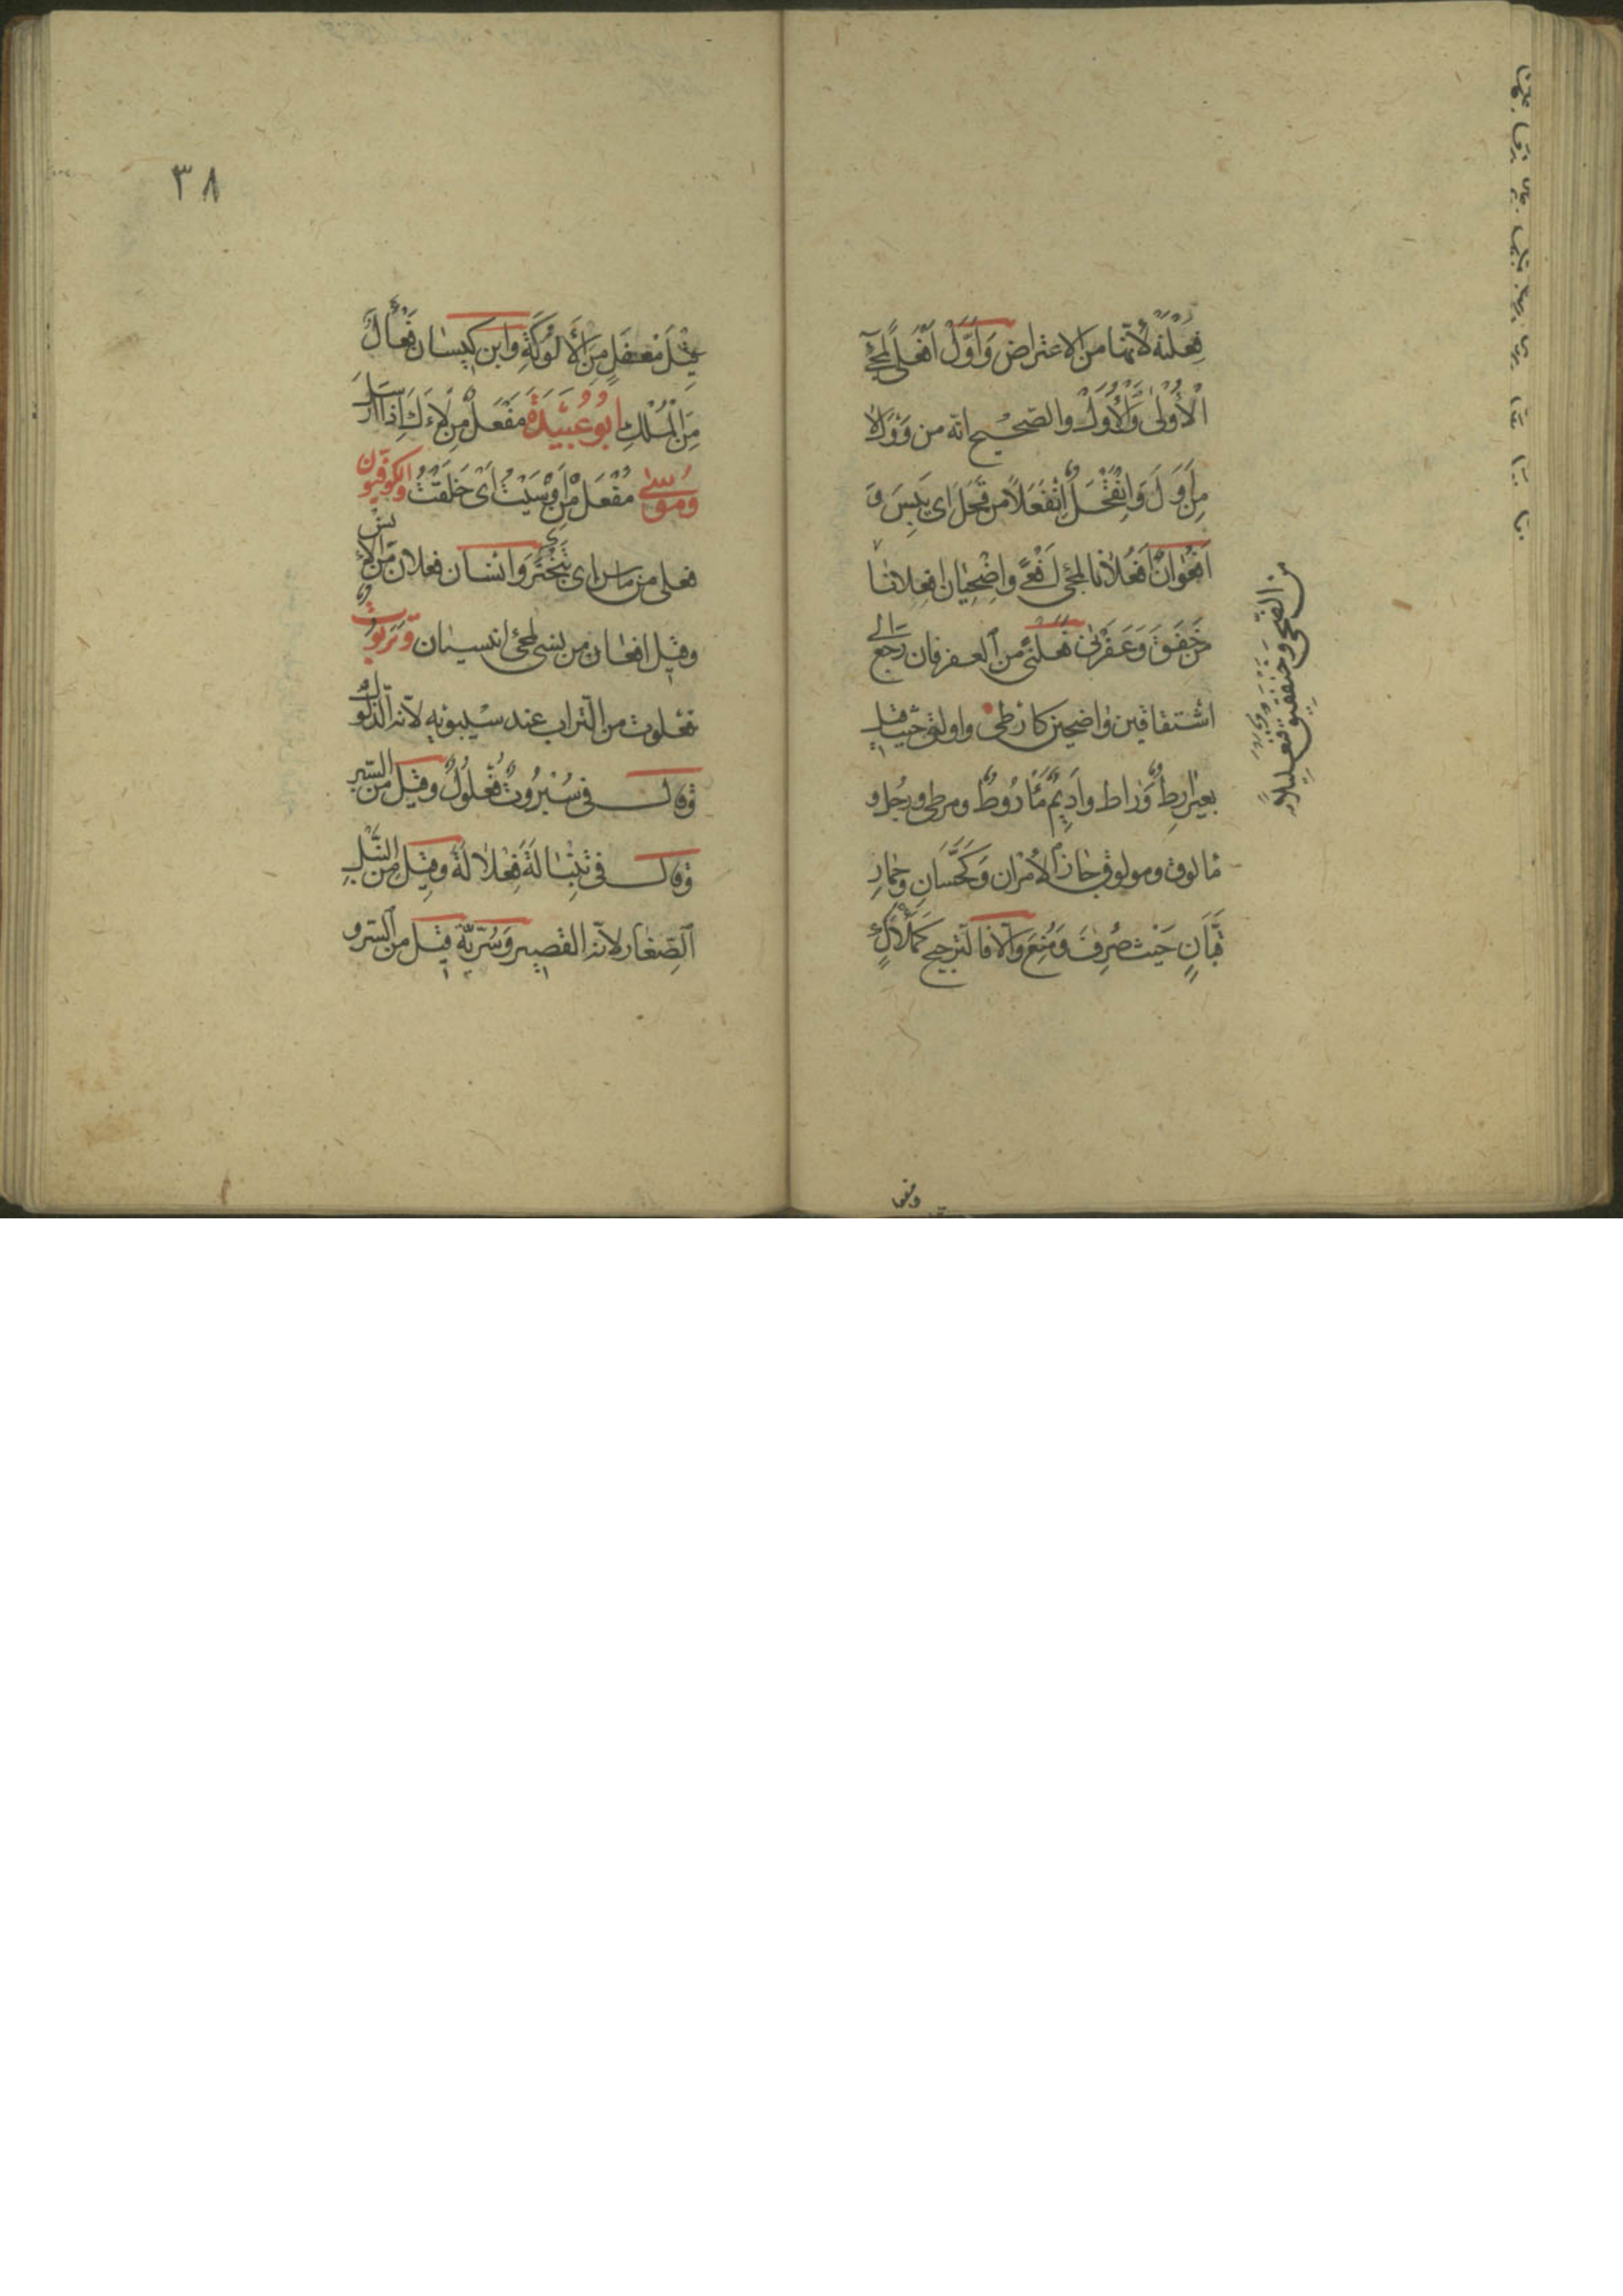 فِعَلْنَةٌ لأنّها من الاعتراض وَأَوَّلُ أَفْعَلَ لمجئ
الْأُوْلَى وَالْأُوَلُ والصّحيح انّه من وَوَلَ لا
مِن أَوَلَ وَاِنْقَحْلُ اِنْفَعْلاً من قَحَلَ اى يَبِسَ و
اُفْعُوَانٌ اُفْعُلَانا لمجئ اَفْعًى وَاِضْحِيَان اِفْعِلانا
من الضحى وخَنْفَقِيق فنعليلا
من خَفَقَ وَعَفَرْنًى فعلنًى من العفر فان رجع الى
اشتقاقين واضحين كارطى واولق حيث قيل
بعيرٌ آرِطٌ وَرَاط وأَدِيمٌ مَأْرُوطٌ ومرطى ورجل
مألوق ومولوق جاز الأمران وَكَحَسَّانٍ وحمارِ
قَبَّانٍ حَيْث صُرِفَ وَمُنِعَ وَالّا فالترجيح كَمَلْأَكٍ
٣٨
قِيْلَ مَفْعَلٍ مِنَ الْأَلُوكَةِ وابن كيسان فَعْأَلٌ
مِنَ الْمُلْكِ ابُو عُبَيْدَةَ مَفْعَلٌ مِن لَأَكَ اِذا ارسَلَ
وَمُوسٰى مُفْعَلٌ مِن أَوْسَيْتُ اَى حَلَقْتُ والكوفيون
فعلى من ماس اى تَبَخْتَرَ وَانسَان فعلان من الأنس
وقيل افعان من نسى لمجئ انيسيان وَتَرَبُوتٌ
فعلوت من التراب عند سيبويه لأنّه الذلول
وقال فى سُبْرُوتٌ فُعْلُولٌ وقيل من السّبر
وقال فى تِنْبَالَةَ فِعْلَالَةٌ وقيل من النَّبَل
الصِّغار لانّه القصير وَسُرِّيَّةٌ قيل من السّرو